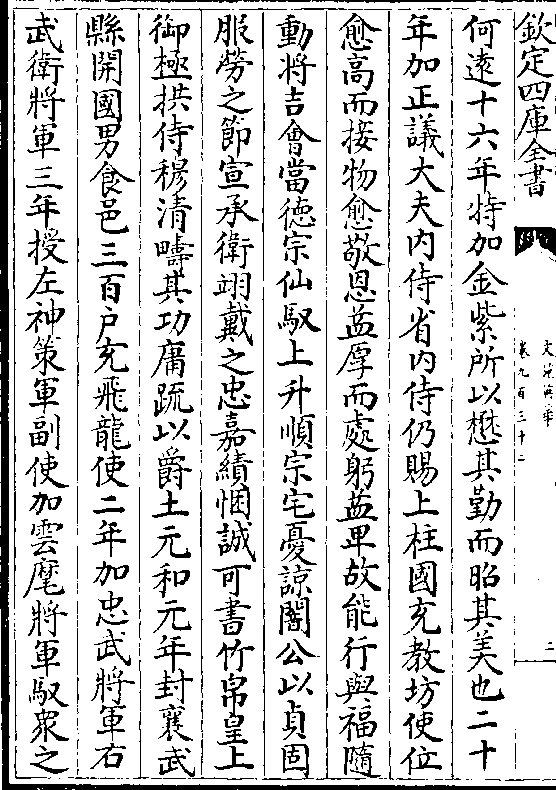 欽定四庫全書
文苑英華
卷九百三十二
二
何遠十六年特加金紫所以懋其勤而昭其美也二十
年加正議大夫内侍省内侍仍賜上柱國充教坊使位
愈高而接物愈敬恩益厚而處躬益卑故能行與福隨
動將吉會當徳宗仙馭上升順宗宅憂諒闇公以貞固
服勞之節宣承衛翊戴之忠嘉績悃誠可書竹帛皇上
御極拱侍穆清疇其功庸䟽以爵土元和元年封襄武
縣開國男食邑三百户充飛龍使二年加忠武將軍右
武衛將軍三年授左神策軍副使加雲麾將軍馭衆之